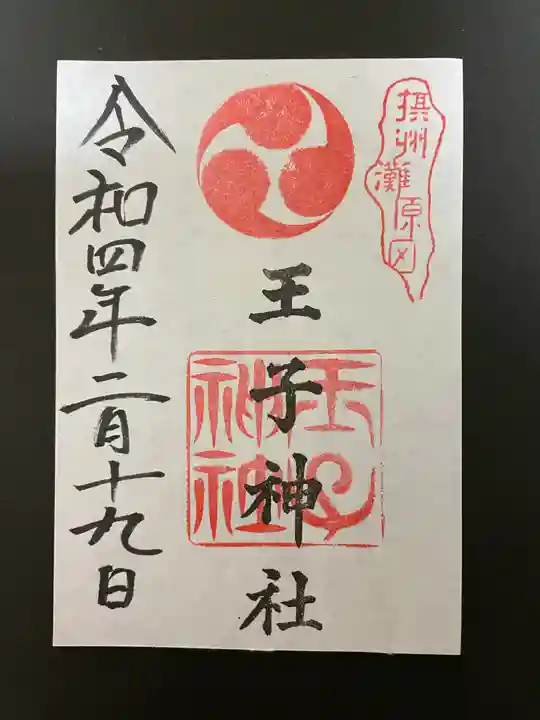 摂州
灘原田
王子神社
王子神社
令和四年二月十九日